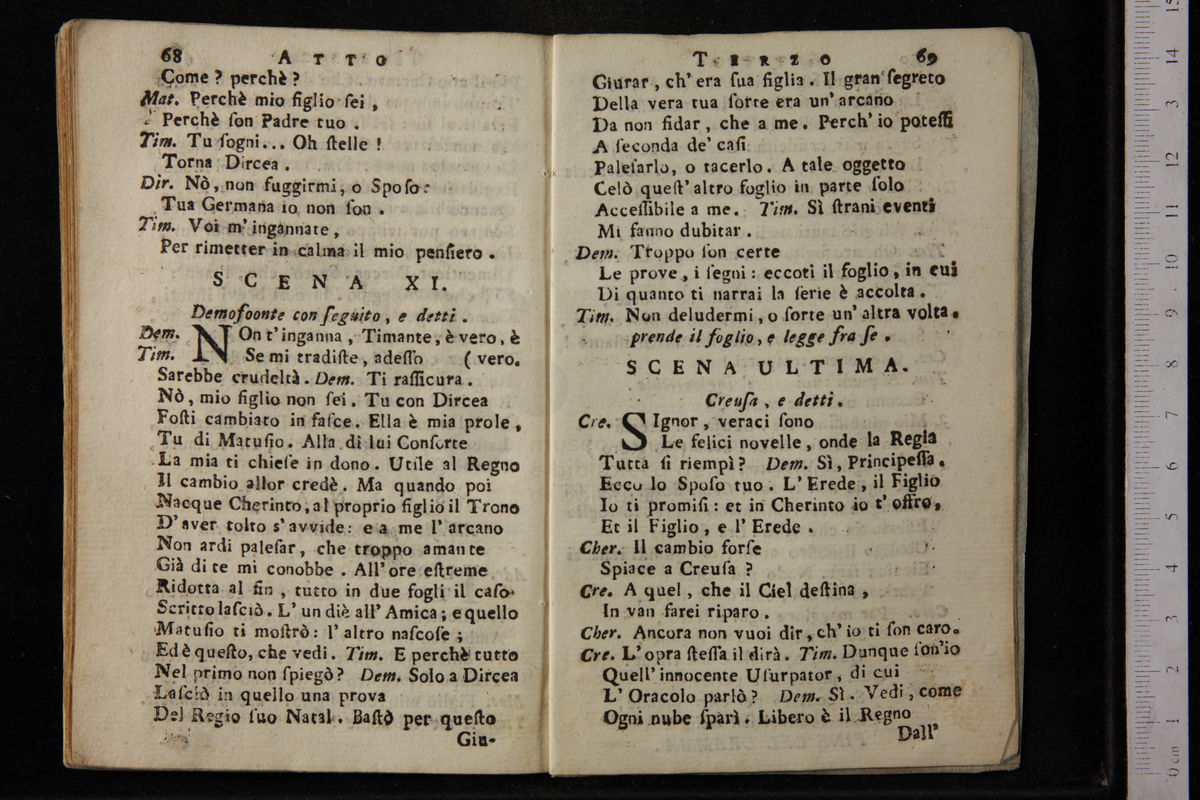 68 ATTO
Come ? perchè ?
Mat. Perchè mio figlio ſei ,
Perchè ſon Padre tuo .
Tim. Tu ſogni... Oh ſtelle !
Torna Dircea .
Dir. Nò, non fuggirmi, o Spoſo:
Tua Germana io non ſon .
Tim. Voi m'ingannate,
Per rimetter in calma il mio penſiero .
SCENA XI.
Demofoonte con ſeguito, e detti .
Dem. NOn t'inganna, Timante, è vero, è
Tim. Se mi tradiſte, adeſſo ( vero.
Sarebbe crudeltà. Dem. Ti raſſicura.
Nò, mio figlio non ſei. Tu con Dircea
Foſti cambiato in faſce. Ella è mia prole,
Tu di Matuſio. Alla di lui Conſorte
La mia ti chieſe in dono. Utile al Regno
Il cambio allor credè. Ma quando poi
Nacque Cherinto, al proprio figlio il Trono
D'aver tolto s'avvide: e a me l'arcano
Non ardi paleſar, che troppo amante
Già di te mi conobbe. All'ore eſtreme
Ridotta al fin, tutto in due fogli il caſo
Scritto laſciò. L'un diè all'Amica; e quello
Matuſio ti moſtrò: l'altro naſcoſe;
Ed è queſto, che vedi. Tim. E perchè tutto
Nel primo non ſpiegò? Dem. Solo a Dircea
Laſciò in quello una prova
Del Regio ſuo Natal. Baſtò per queſto
Giu-
TERZO 69
Giurar, ch'era ſua figlia. Il gran ſegreto
Della vera tua ſorte era un'arcano
Da non fidar, che a me. Perch'io poteſſi
A ſeconda de'caſi
Paleſarlo, o tacerlo. A tale oggetto
Celò queſt'altro foglio in parte ſolo
Acceſſibile a me. Tim. Sì ſtrani eventi
Mi fanno dubitar.
Dem. Troppo ſon certe
Le prove, i ſegni: eccoti il foglio, in cui
Di quanto ti narrai la ſerie è accolta.
Tim. Non deludermi, o ſorte un'altra volta.
prende il foglio, e legge fra ſe.
SCENA ULTIMA.
Creuſa, e detti.
Cre. SIgnor, veraci ſono
Le felici novelle, onde la Regia
Tutta ſi riempì? Dem. Sì, Principeſſa.
Ecco lo Spoſo tuo. L'Erede, il Figlio
Io ti promiſi: et in Cherinto io t'offro,
Et il Figlio, e l'Erede.
Cher. Il cambio forſe
Spiace a Creuſa ?
Cre. A quel, che il Ciel deſtina,
In van farei riparo.
Cher. Ancora non vuoi dir, ch'io ti ſon caro.
Cre. L'opra ſteſſa il dirà. Tim. Dunque ſon'io
Quell'innocente Uſurpator, di cui
L'Oracolo parlò? Dem. Sì. Vedi, come
Ogni nube ſparì. Libero è il Regno
Dall'
0 cm 1 2 3 4 5 6 7 8 9 10 11 12 3 14 15